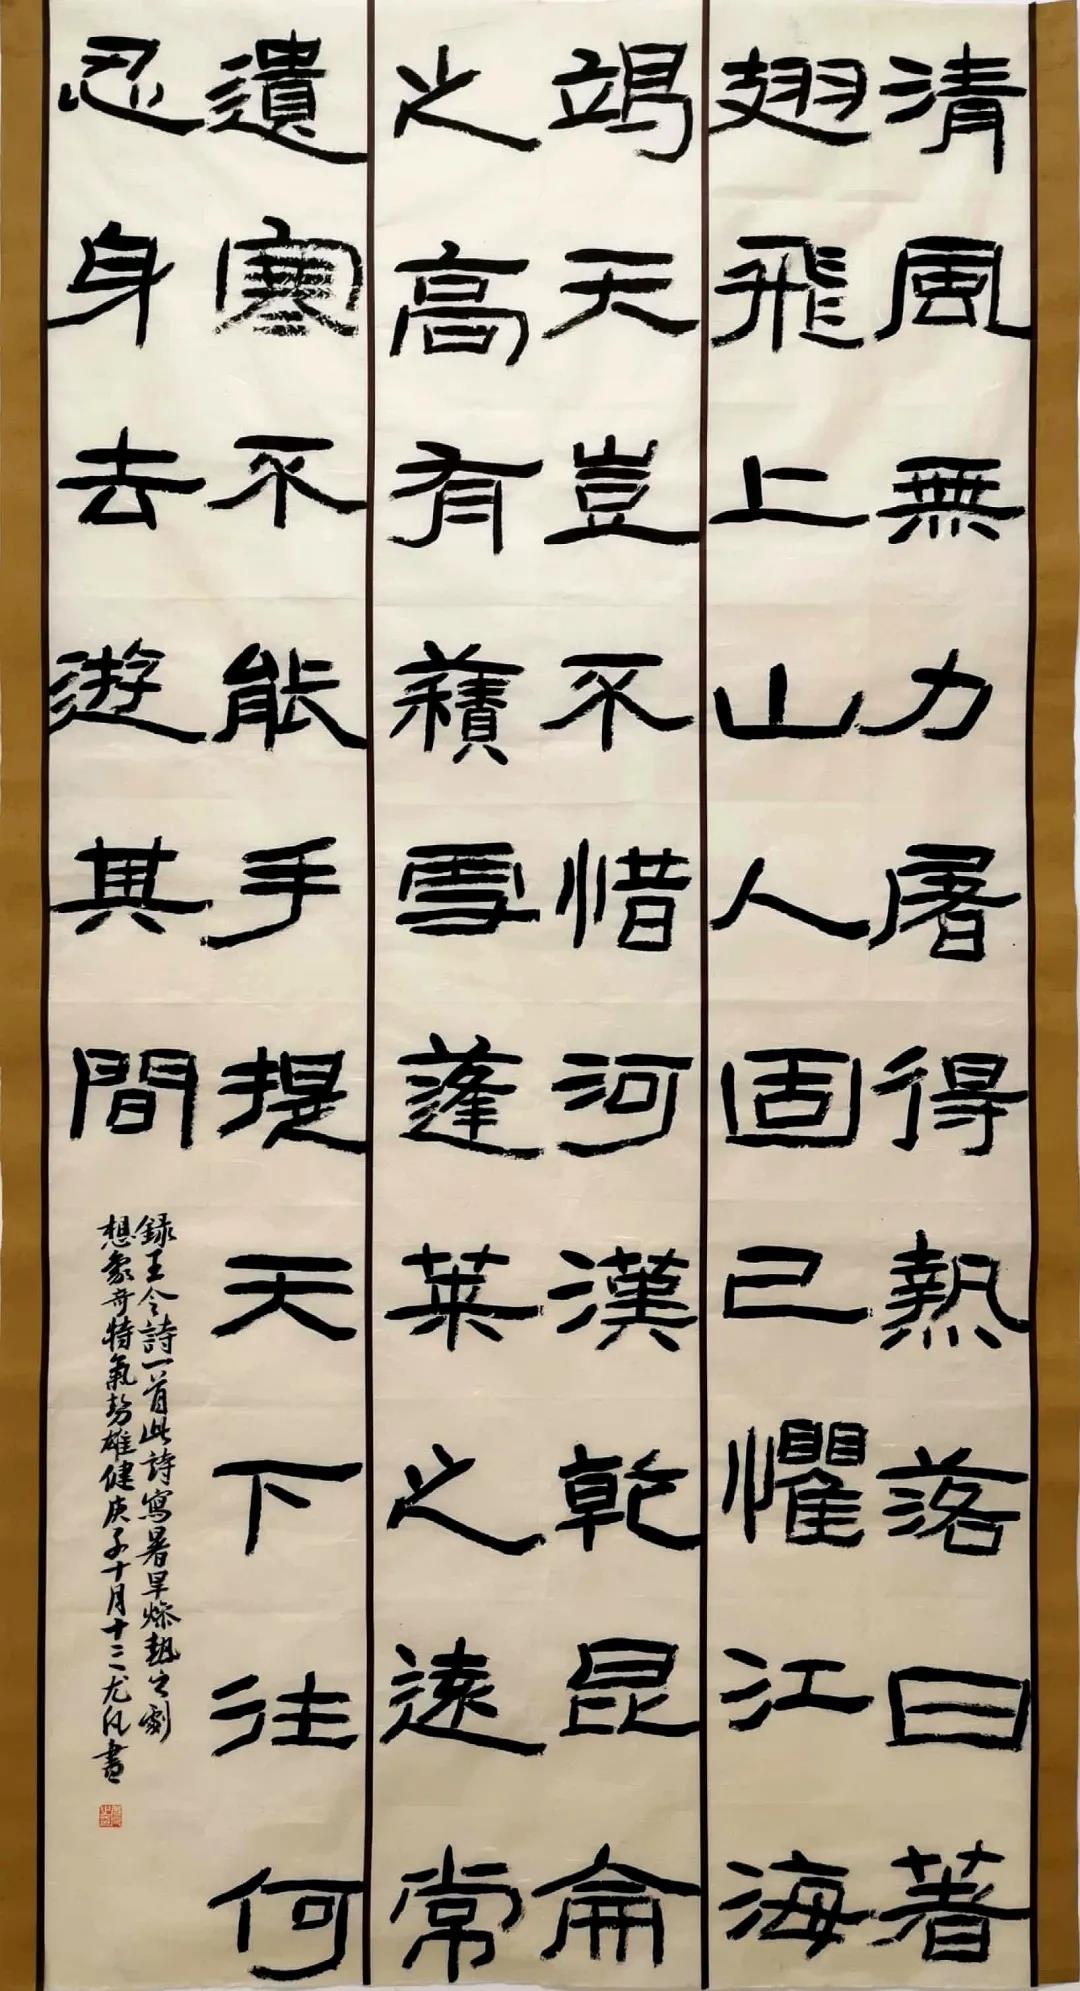 清風無力屠得熱落日著
翅飛上山人固已懼江海
竭天豈不惜河漢乾昆侖
之高有積雪蓬萊之遠常
遺寒不能手提天下往何
忍身去遊其間
録王令詩一首此詩寫暑旱燥熱之劇
想象奇特氣勢雄健庚子十月十二尤凡書